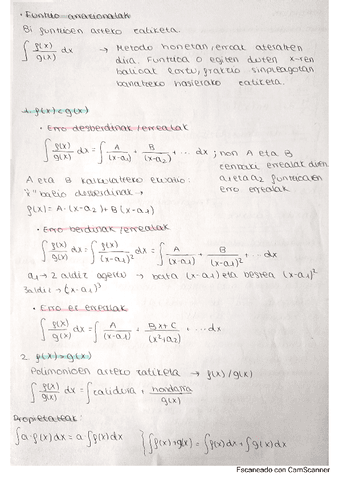 · Funtzio arrazionalak
Bi funtzioen arteko zatiketa.
∫ f(x)/g(x) dx → Metodo honetan, erroak ateratzen
dira. Funtzioa 0 egiten duten x-ren
balioak lortu, frakzio sinpleagotan
banatzeko hasierako zatiketa.
1. f(x) < g(x)
• Erro desberdinak /errealak
∫ f(x)/g(x) dx = ∫ A/(x-a₁) + B/(x-a₂) + ... dx ; non A eta B
zenbaki errealak diren
A eta B kalkulatzeko
a₁ eta a₂ funtzioaren
erro errealak
balio desberdinak →
f(x) = A·(x-a₂) + B(x-a₁)
• Erro berdinak /errealak
∫ f(x)/g(x) dx = ∫ f(x)/(x-a₁)² dx = ∫ A/(x-a₁) + B/(x-a₁)² + ... dx
a₁ → 2 aldiz agertu → bata (x-a₁) eta bestea (x-a₁)²
3 aldiz → (x-a₁)³
• Erro ez errealak
∫ f(x)/g(x) dx = ∫ A/(x-a₁) + Bx+C/(x²+a₂) + ... dx
2. f(x) > g(x)
Polinomioen arteko zatiketa → f(x)/g(x)
∫ f(x)/g(x) dx = ∫ zatidura + hondarra/g(x)
Propietateak:
∫a·f(x)dx = a·∫f(x)dx } ∫f(x)+g(x) = ∫f(x)dx + ∫g(x)dx
Escaneado con CamScanner